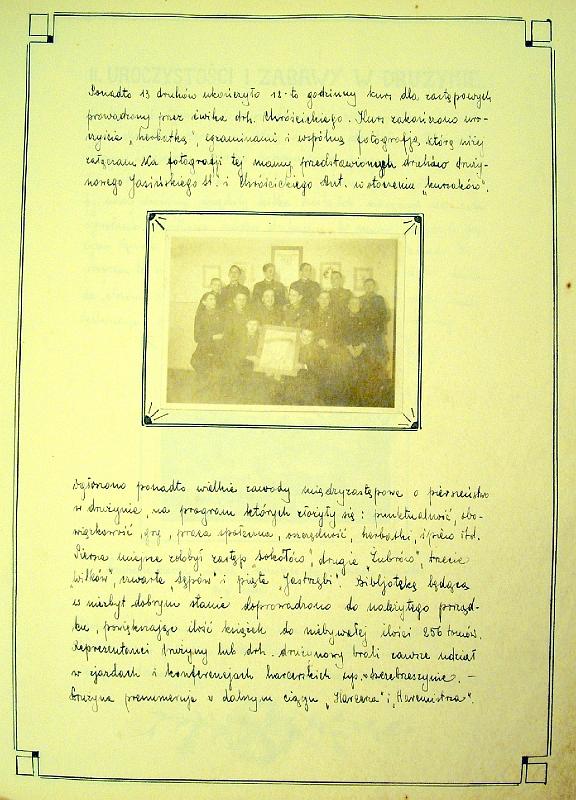 Ponadto 13 druhów ukończyło 12-to godzinny kurs dla zastępowych
prowadzony przez ćwika drh. Chróścickiego. Kurs zakończono uro-
czyście „herbatką”, egzaminami i wspólną fotografją, którą niżej
załączam. Na fotografji tej mamy przedstawionych druhów druży-
nowego Jasińskiego St. i Chróścickiego Ant. w otoczeniu „kursaków”.
Ogłoszono ponadto wielkie zawody międzyzastępowe o pierszeństwo
w drużynie, na program których złożyły się: punktualność, obo-
wiązkowość, gry, praca społeczna, oszczędność, herbatki, śpiew itd.
miejsce zdobył zastęp „Sokołów”, drugie „Żubrów”, trzecie
„Wilków”, czwarte „Sępów” i piąte „Jastrzębi”. Bibljotekę będącą
w niezbyt dobrym stanie doprowadzono do należytego porząd-
ku, powiększając ilość książek do niebywałej ilości 256 tomów.
Reprezentanci drużyny lub drh. drużynowy brali zawsze udział
w zjazdach i konferencjach harcerskich np. w Szczebrzeszynie. –
Drużyna prenumeruje w dalszym ciągu „Harcerza” i „Harcmistrza”.